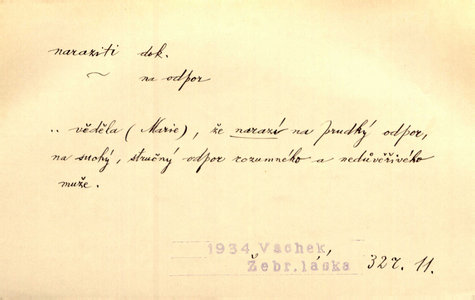 naraziti dok.
~ na odpor
.. věděla (Marie), že narazí na prudký odpor,
na suchý, stručný odpor rozumného a nedůvěřivého
muže.
1934 Vachek,
Žebr. láska 327. 11.